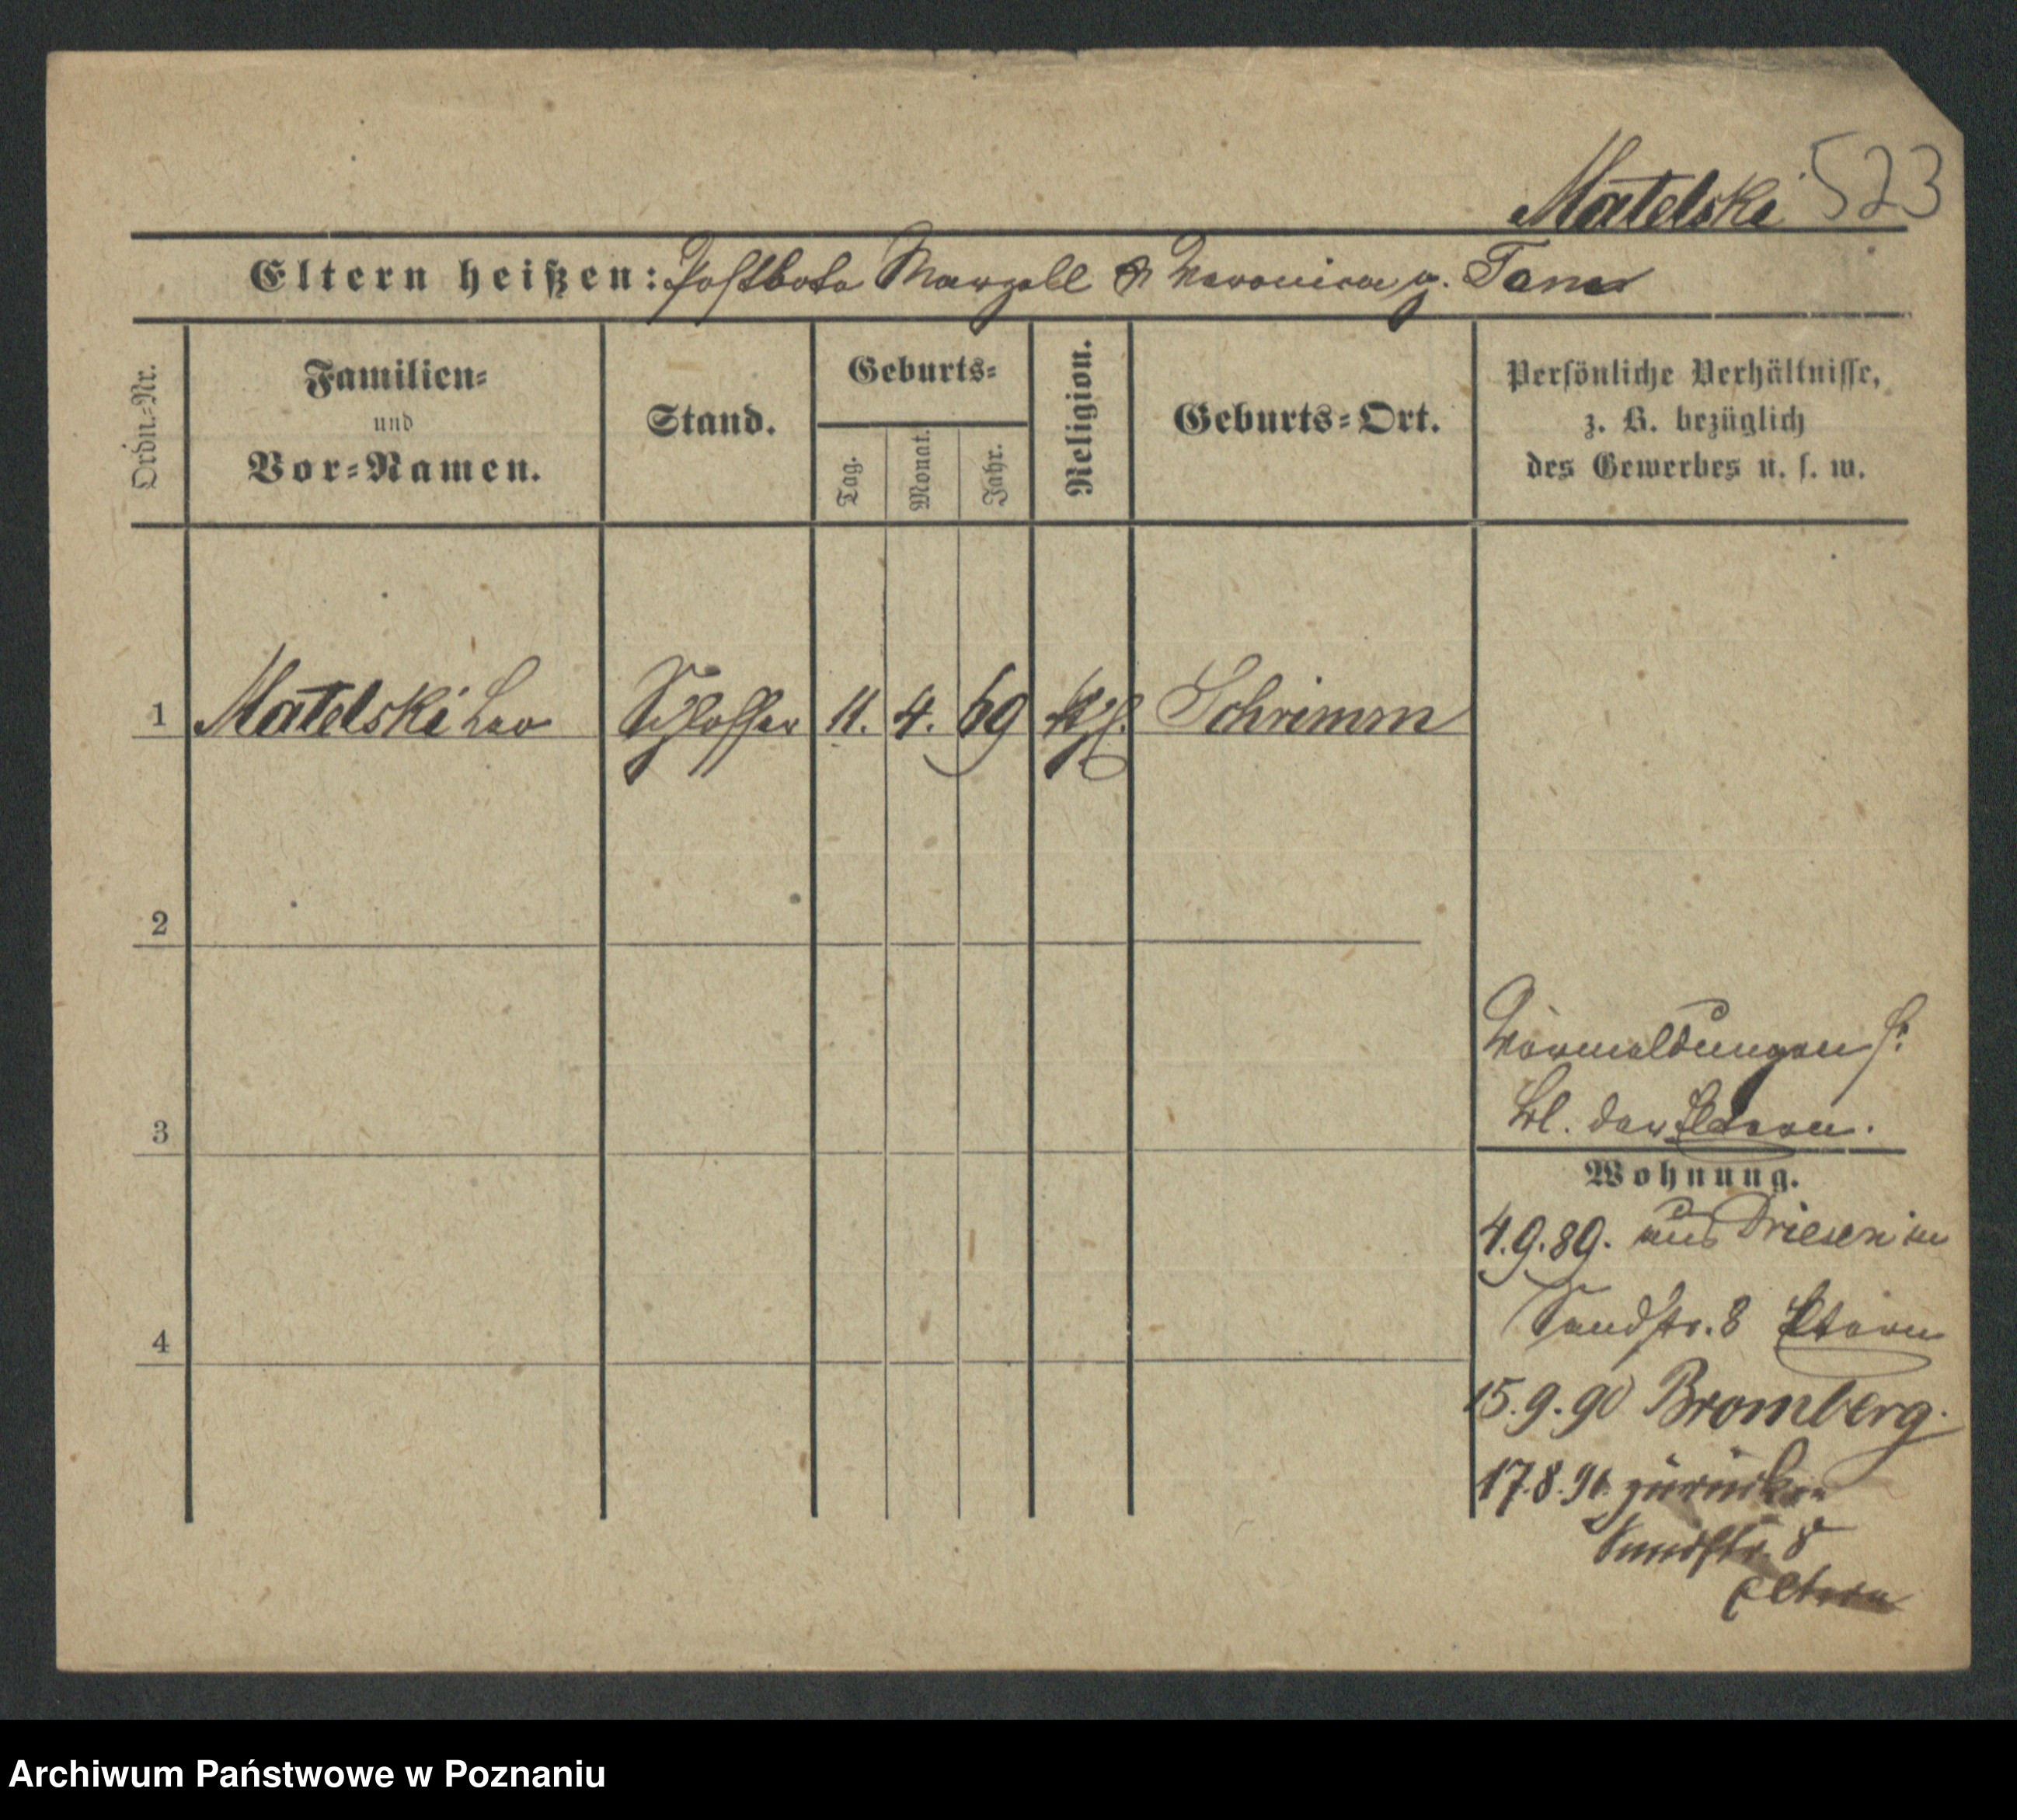 Matelski 523
Eltern heißen: Postbote Marzell & Veronica g.
Ordn.-Nr.
Familien-
und
Vor-Namen.
Stand.
Geburts-
Tag.
Monat.
Jahr.
Religion.
Geburts-Ort.
Persönliche Verhältnisse,
z. B. bezüglich
des Gewerbes u. s. w.
1 Matelski Leo Schlosser 11. 4. 69 Schrimm
2
Vormeldungen s.
Bl. der Eltern.
3
Wohnung.
4.9.89. aus Driesen in
Sandstr. 8 Eltern
4
15.9.90 Bromberg.
17.8.91. zurück
Sandstr. 8
Eltern
Archiwum Państwowe w Poznaniu